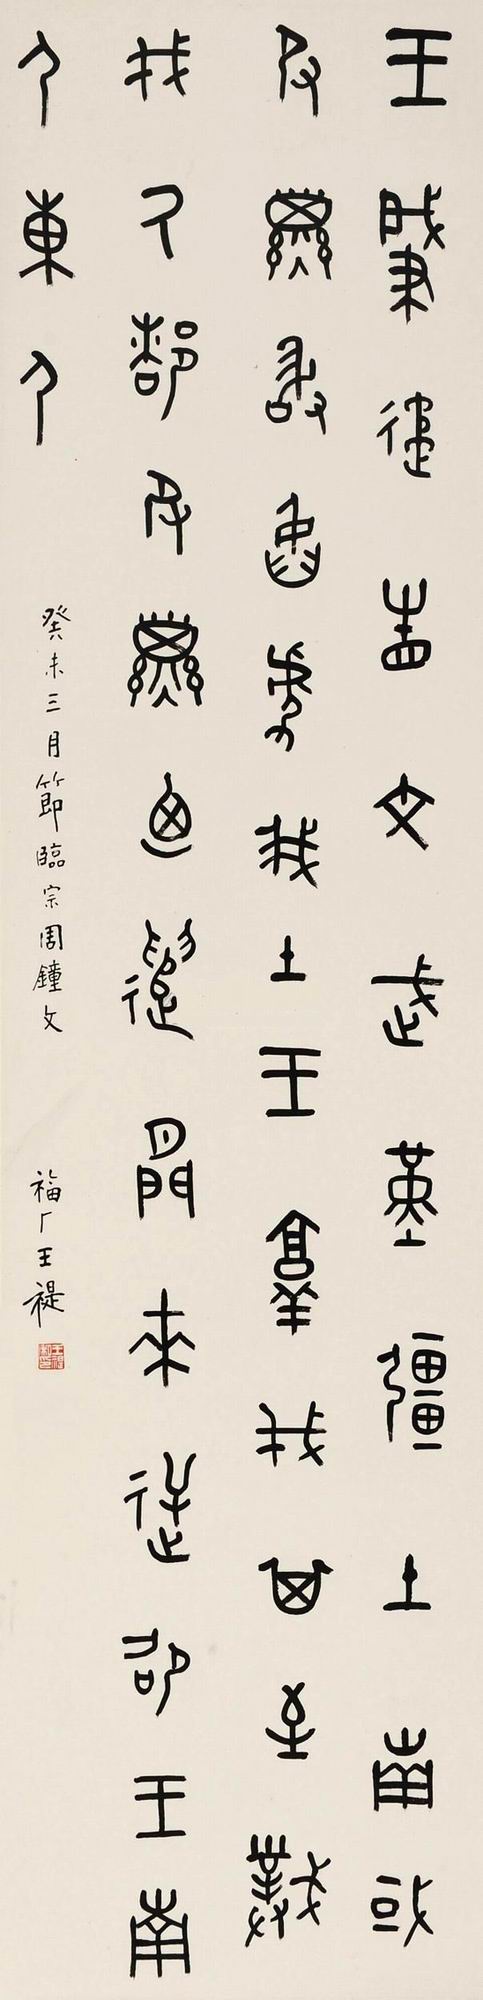 王肇遹省文武堇疆土南或
𠬝孳敢臽虐我土王𦎫伐其至𢧢
伐氒都𠬝孳廼遣閒來逆卲王南
尸東尸
癸未三月節臨宗周鐘文
福厂王禔